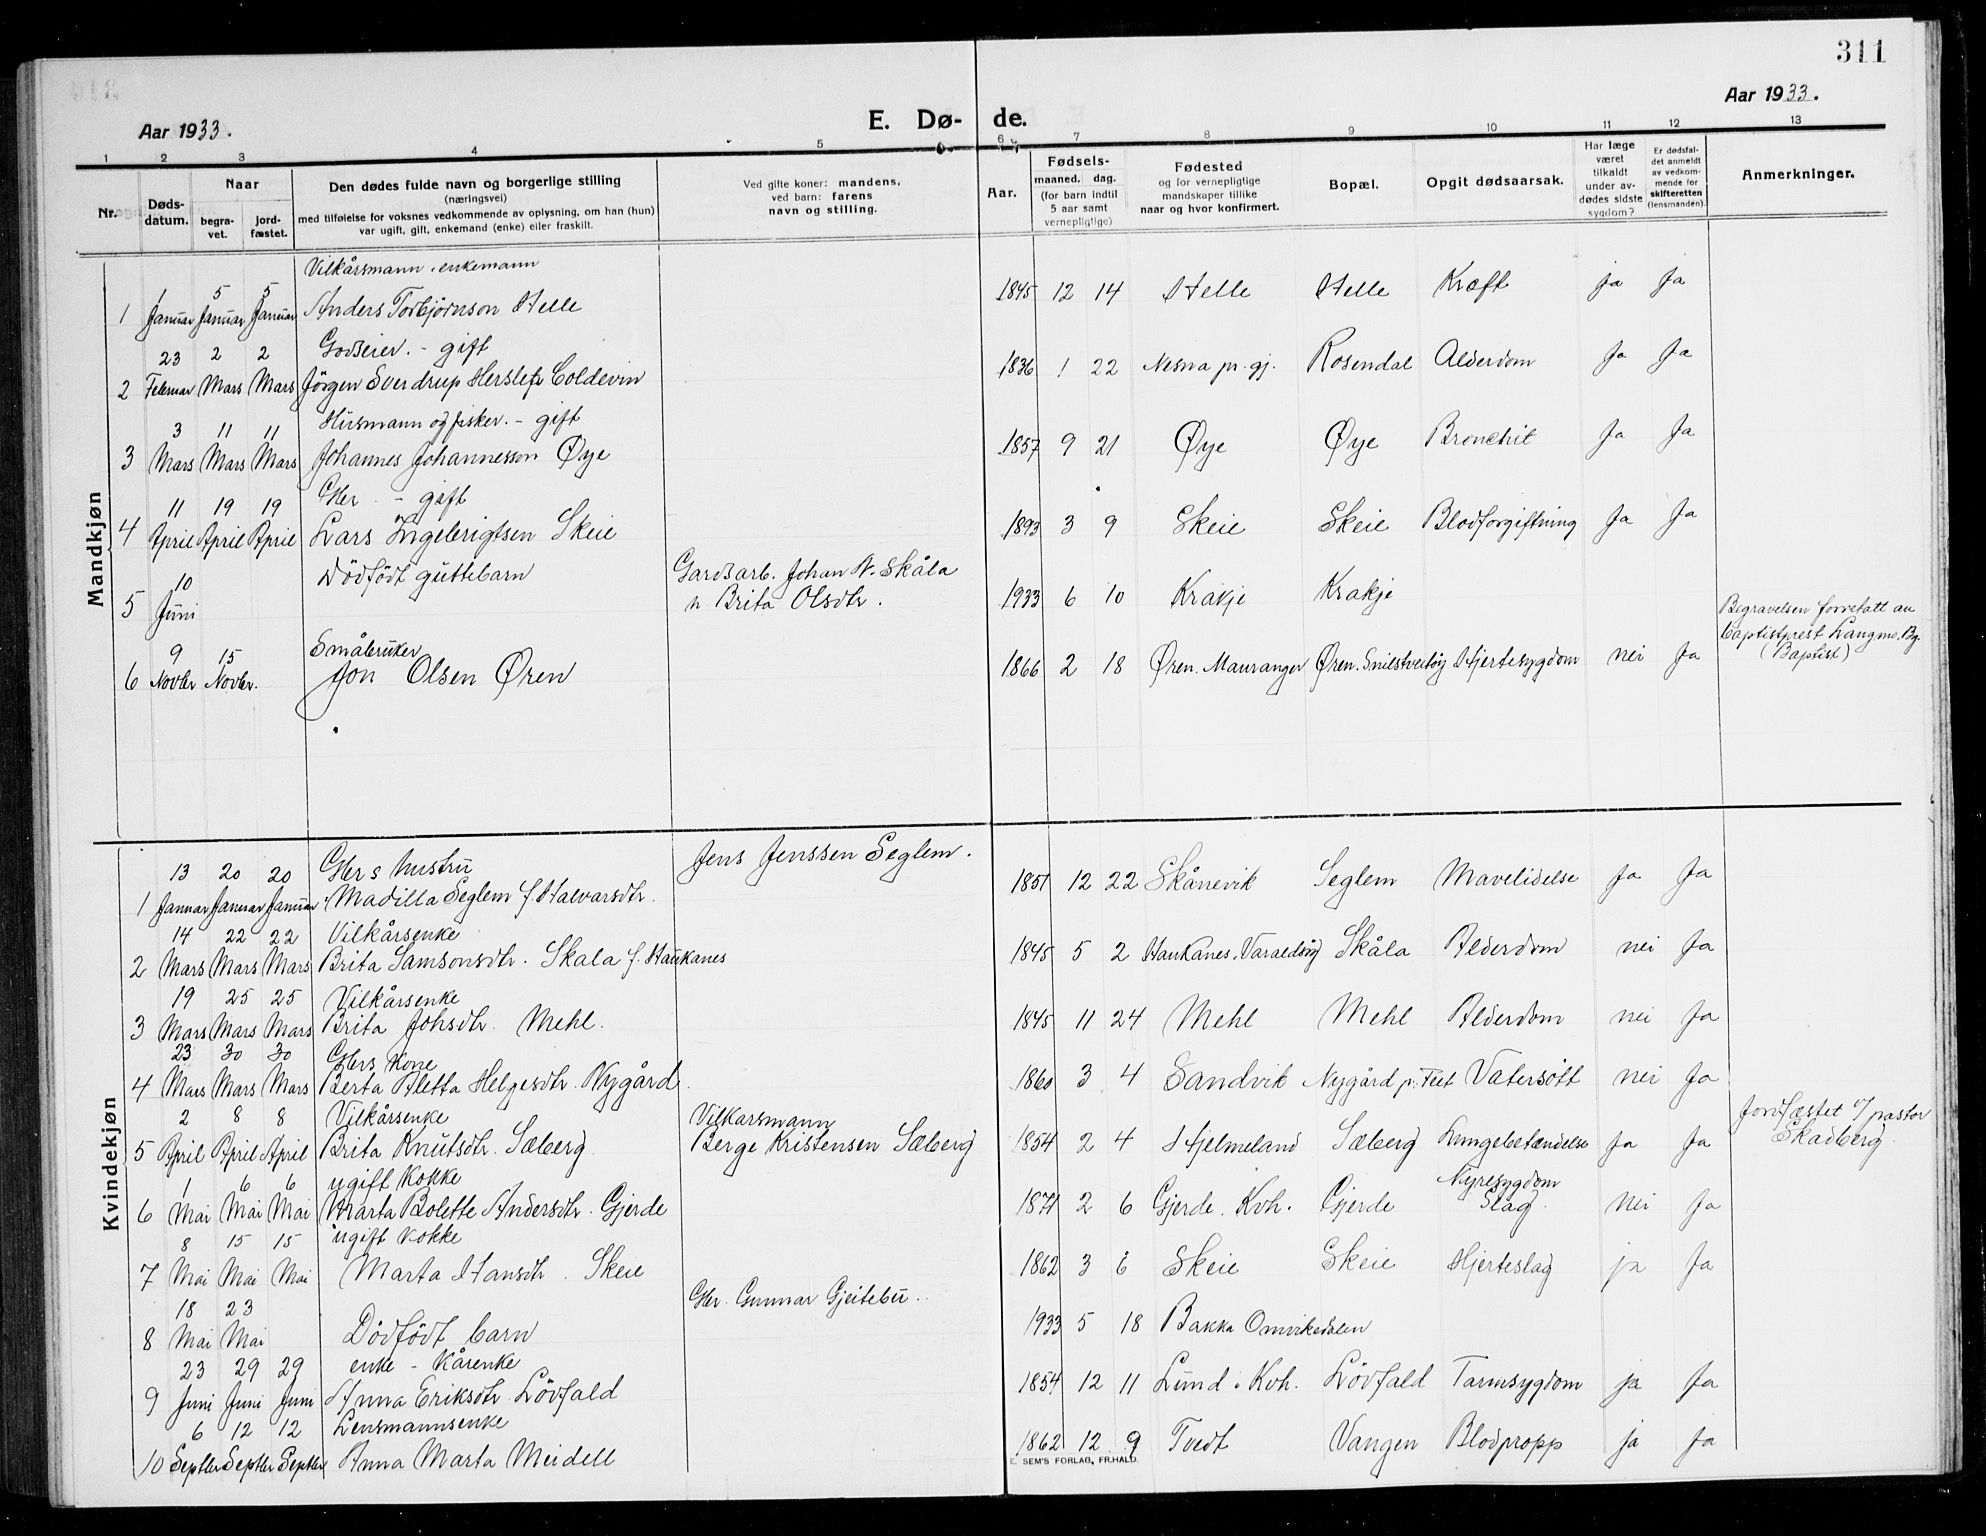 311
Aar 1933.
E. Dø- de.
Aar 1933.
1 2 3 4 5 6 7 8 9 10 11 12 13
Nr.
Døds-
datum.
Naar
begra-
vet.
jord-
fæstet.
Den dødes fulde navn og borgerlige stilling
(næringsvei)
med tilføielse for voksnes vedkommende av oplysning, om han (hun)
var ugift, gift, enkemand (enke) eller fraskilt.
Ved gifte koner: mandens,
ved barn: farens
navn og stilling.
Aar.
Fødsels-
maaned. dag.
(for barn indtil
5 aar samt
vernepligtige)
Fødested
og for vernepligtige
mandskaper tillike
naar og hvor konfirmert.
Bopæl.
Opgit dødsaarsak.
Har læge
været
tilkaldt
under av-
dødes sidste
sygdom?
Er dødsfal-
det anmeldt
av vedkom-
mende for
skifteretten
(lensmanden).
Anmerkninger.
Mandkjøn
Vilkårsmann. enkemann
1 5 5
1 Januar Januar Januar Anders Torbjørnson Helle 1845 12 14 Helle Helle Kræft ja Ja
23 2 2 Godseier. - gift
2 Februar Mars Mars Jørgen Sverdrup Hersleb Coldevin 1836 1 22 Nesna pr. gj. Rosendal Alderdom Ja Ja
3 11 11 Husmann og fisker. - gift
3 Mars Mars Mars Johannes Johannesson Øye 1857 9 21 Øye Øye Bronchit Ja Ja
11 19 19 Gbr. - gift
4 April April April Lars Ingebrigtsen Skeie 1893 3 9 Skeie Skeie Blodforgiftning Ja Ja
10 Dödfödt guttebarn Gardsarb. Johan N. Skåla
5 Juni h Brita Olsdtr. 1933 6 10 Krakje Krakje
9 15 Småbruker
6 Novbr Novbr. Jon Olsen Øren 1866 2 18 Øren. Mauranger Øren. Snilstveitøy Hjertesygdom nei Ja
Begravelsen forretatt av
baptistprest Langmo. Bg.
(Baptist)
Kvindekjøn
13 20 20 Gbr s hustru Jens Jenssen Seglem.
1 Januar Januar Januar Madilla Seglem f. Halvarsdtr. 1851 12 22 Skånevik Seglem Mavelidelse Ja Ja
14 22 22 Vilkårsenke
2 Mars Mars Mars Brita Samsonsdtr. Skala f. Haukanes 1845 5 2 Haukanes. Varaldsöy Skåla Alderdom nei Ja
19 25 25 Vilkårsenke
3 Mars Mars Mars Brita Johsdtr. Mehl. 1845 11 24 Mehl Mehl Alderdom nei Ja
23 30 30 Gbrs kone
4 Mars Mars Mars Berta Aletta Helgesdtr. Nygård. 1860 3 4 Sandvik Nygård p. Teet Vatersött nei Ja
2 8 8 Vilkårsenke Vilkarsmann
5 April April April Brita Knutsdtr. Sæberg Berge Kristensen Sæberg 1854 2 4 Hjelmeland Sæberg Lungebetændelse Ja Ja
Jordfæstet v/ pastor
Skadberg.
1 6 6 ugift kokke
6 Mai Mai Mai Marta Bolette Andersdtr. Gjerde 1871 2 6 Gjerde. Kvh. Gjerde Nyresygdom
Slag. nei Ja
8 15 15 ugift kokke
7 Mai Mai Mai Marta Hansdtr. Skeie 1862 3 6 Skeie Skeie Hjerteslag ja Ja
18 23 Gbr. Gunnar Gjeitebu.
8 Mai Mai Dödfödt barn 1933 5 18 Bakka Omvikedalen
23 29 29 enke - Kårenke
9 Juni Juni Juni Anna Eriksdtr. Lövfald 1854 12 11 Lund i Kvh. Lövfald Tarmsygdom ja Ja
6 12 12 Lensmannsenke
10 Septbr Septbr Septbr Anna Marta Meidell 1862 12 9 Tvedt Vangen Blodpropp ja Ja
E. SEM'S FORLAG, FR.HALD.